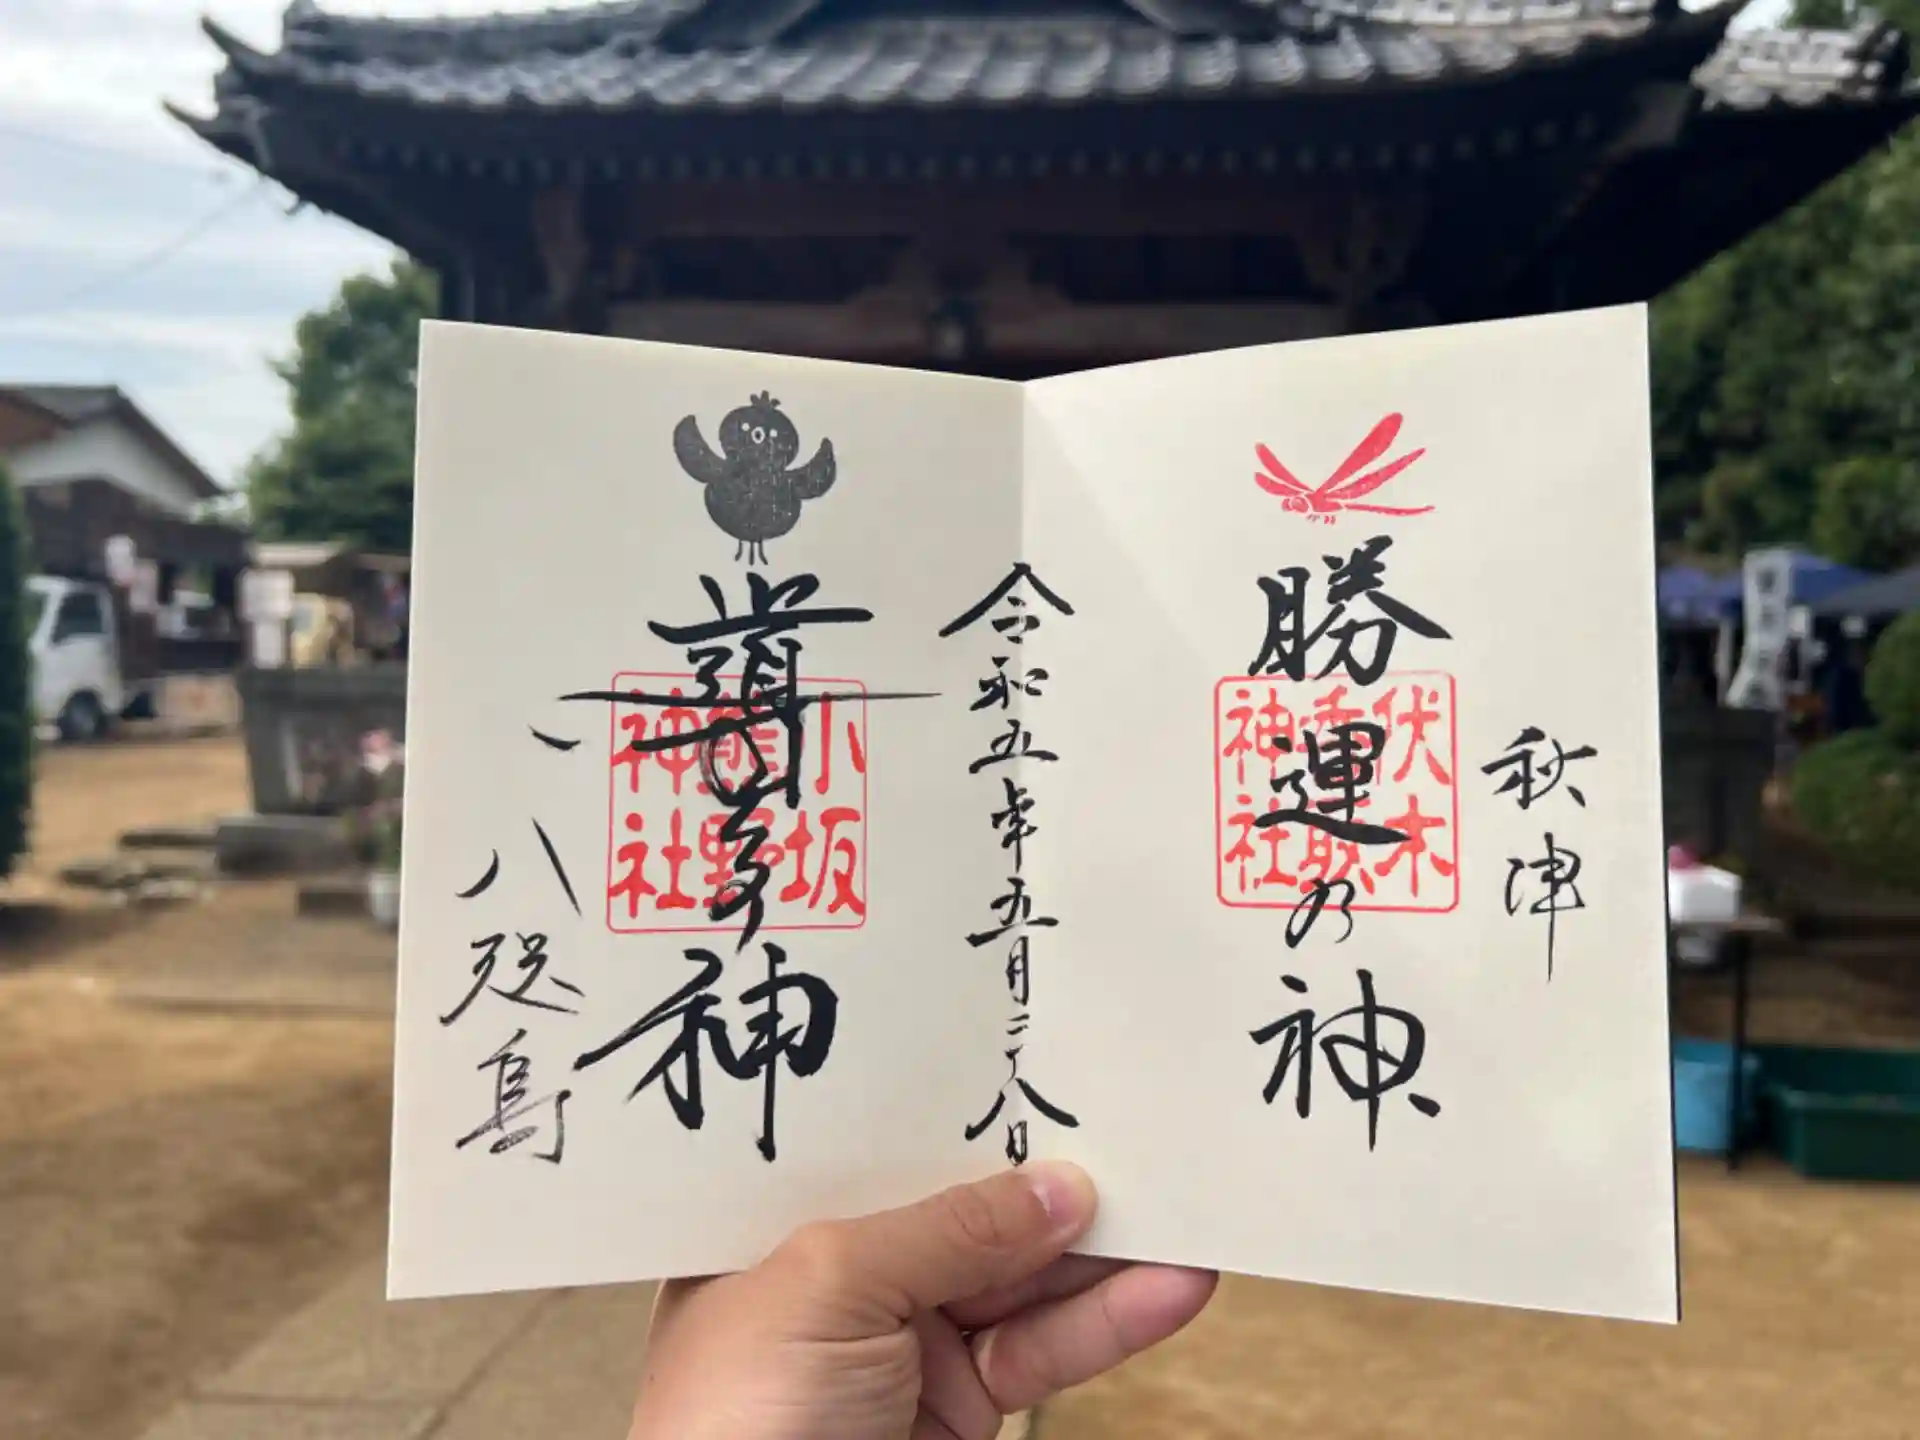 秋津
勝運の神
伏木
香取
神社
令和五年五月二十八日
小坂
熊野
神社
神
八咫烏